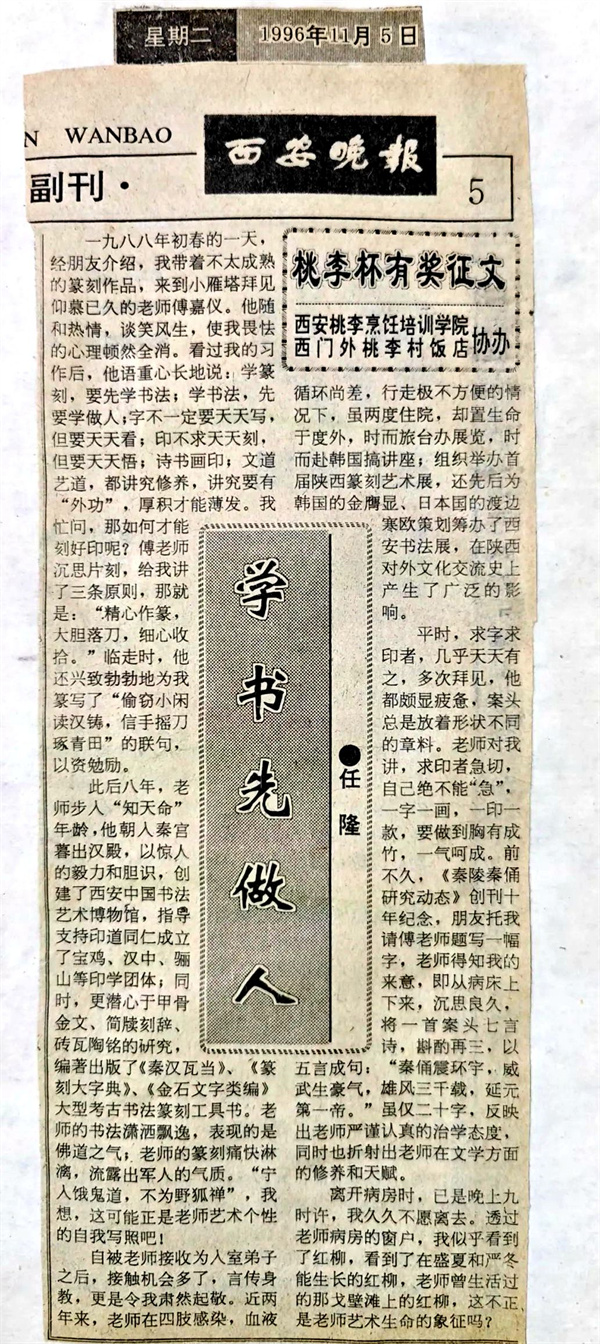 星期二 1996年11月5日
N WANBAO
西安晚报
副刊·
5
桃李杯有奖征文
西安桃李烹饪培训学院
西门外桃李村饭店
协办
学书先做人
●任隆
一九八八年初春的一天，
经朋友介绍，我带着不太成熟
的篆刻作品，来到小雁塔拜见
仰慕已久的老师傅嘉仪。他随
和热情，谈笑风生，使我畏怯
的心理顿然全消。看过我的习
作后，他语重心长地说：学篆
刻，要先学书法；学书法，先
要学做人；字不一定要天天写，
但要天天看；印不求天天刻，
但要天天悟；诗书画印；文道
艺道，都讲究修养，讲究要有
“外功”，厚积才能薄发。我
忙问，那如何才能
刻好印呢？傅老师
沉思片刻，给我讲
了三条原则，那就
是：“精心作篆，
大胆落刀，细心收
拾。”临走时，他
还兴致勃勃地为我
篆写了“偷窃小闲
读汉铸，信手摇刀
琢青田”的联句，
以资勉励。
此后八年，老
师步入“知天命”
年龄，他朝入秦宫
暮出汉殿，以惊人
的毅力和胆识，创
建了西安中国书法
艺术博物馆，指导
支持印道同仁成立
了宝鸡、汉中、骊
山等印学团体；同
时，更潜心于甲骨
金文、简牍刻辞、
砖瓦陶铭的研究，
编著出版了《秦汉瓦当》、《篆
刻大字典》、《金石文字类编》
大型考古书法篆刻工具书。老
师的书法潇洒飘逸，表现的是
佛道之气；老师的篆刻痛快淋
漓，流露出军人的气质。“宁
入饿鬼道，不为野狐禅”，我
想，这可能正是老师艺术个性
的自我写照吧！
自被老师接收为入室弟子
之后，接触机会多了，言传身
教，更是令我肃然起敬。近两
年来，老师在四肢感染，血液
循环尚差，行走极不方便的情
况下，虽两度住院，却置生命
于度外，时而旅台办展览，时
而赴韩国搞讲座；组织举办首
届陕西篆刻艺术展，还先后为
韩国的金膺显、日本国的渡边
寒欧策划筹办了西
安书法展，在陕西
对外文化交流史上
产生了广泛的影
响。
平时，求字求
印者，几乎天天有
之，多次拜见，他
都颇显疲惫，案头
总是放着形状不同
的章料。老师对我
讲，求印者急切，
自己绝不能“急”，
一字一画，一印一
款，要做到胸有成
竹，一气呵成。前
不久，《秦陵秦俑
研究动态》创刊十
年纪念，朋友托我
请傅老师题写一幅
字，老师得知我的
来意，即从病床上
下来，沉思良久，
将一首案头七言
诗，斟酌再三，以
五言成句：“秦俑震环宇，威
武生豪气，雄风三千载，延元
第一帝。”虽仅二十字，反映
出老师严谨认真的治学态度，
同时也折射出老师在文学方面
的修养和天赋。
离开病房时，已是晚上九
时许，我久久不愿离去。透过
老师病房的窗户，我似乎看到
了红柳，看到了在盛夏和严冬
能生长的红柳，老师曾生活过
的那戈壁滩上的红柳，这不正
是老师艺术生命的象征吗？